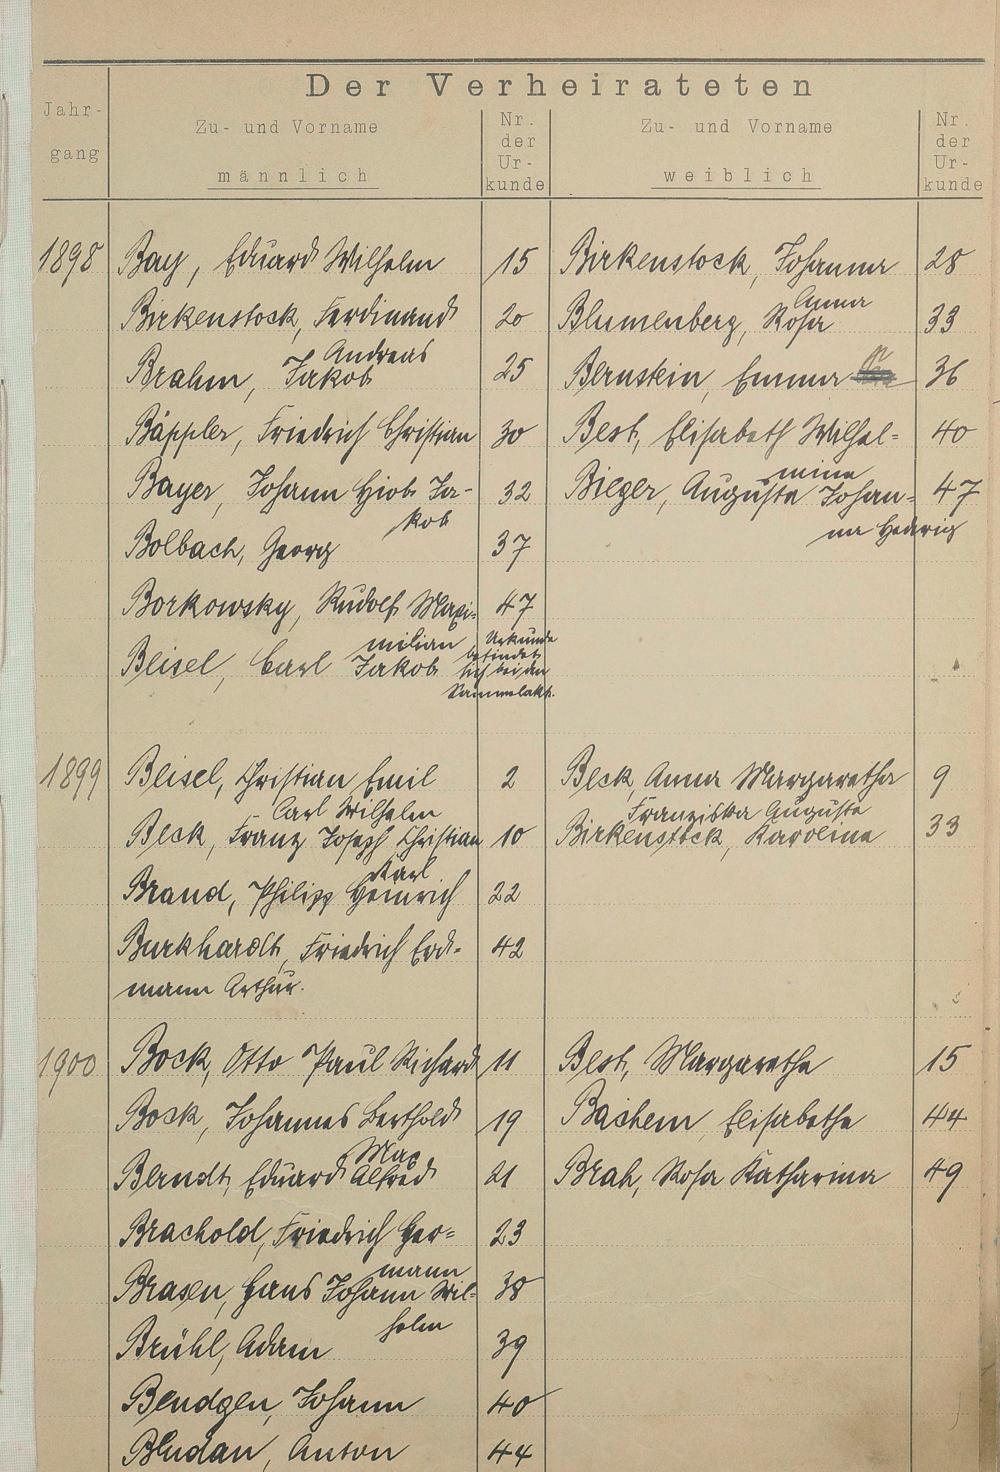 Der Verheirateten
Jahrgang
Zu- und Vorname
männlich
Nr. der Urkunde
Zu- und Vorname
weiblich
Nr. der Urkunde
1898 Bay, Eduard Wilhelm 15 Birkenstock, Johanna 28
Anna
Birkenstock, Ferdinand 20 Blumenberg, Rosa 33
Andreas
Brahm, Jakob 25 Bernstein, Emma 36
Bäppler, Friedrich Christian 30 Best, Elisabeth Wilhel- 40
mine
Bayer, Johann Hiob Ja- 32 Bieger, Auguste Johan- 47
kob na Hedwig
Bolbach, Georg 37
Borkowsky, Rudolf Maxi- 47
milian Urkunde befindet
Beisel, Carl Jakob sich bei den
Sammelakt.
1899 Beisel, Christian Emil 2 Beck, Anna Margaretha 9
Carl Wilhelm Franziska Auguste
Beck, Franz Joseph Christian 10 Birkenstock, Karolina 33
Karl
Brand, Philipp Heinrich 22
Burkhardt, Friedrich Erd- 42
mann Arthur.
1900 Bock, Otto Paul Richard 11 Best, Margarethe 15
Bock, Johannes Berthold 19 Bachem, Elisabethe 44
Max
Berndt, Eduard Alfred 21 Brah, Rosa Katharina 49
Brachold, Friedrich Her- 23
mann
Brasen, Hans Johann Wil- 38
helm
Brühl, Adam 39
Bendgen, Johann 40
Bludau, Anton 44